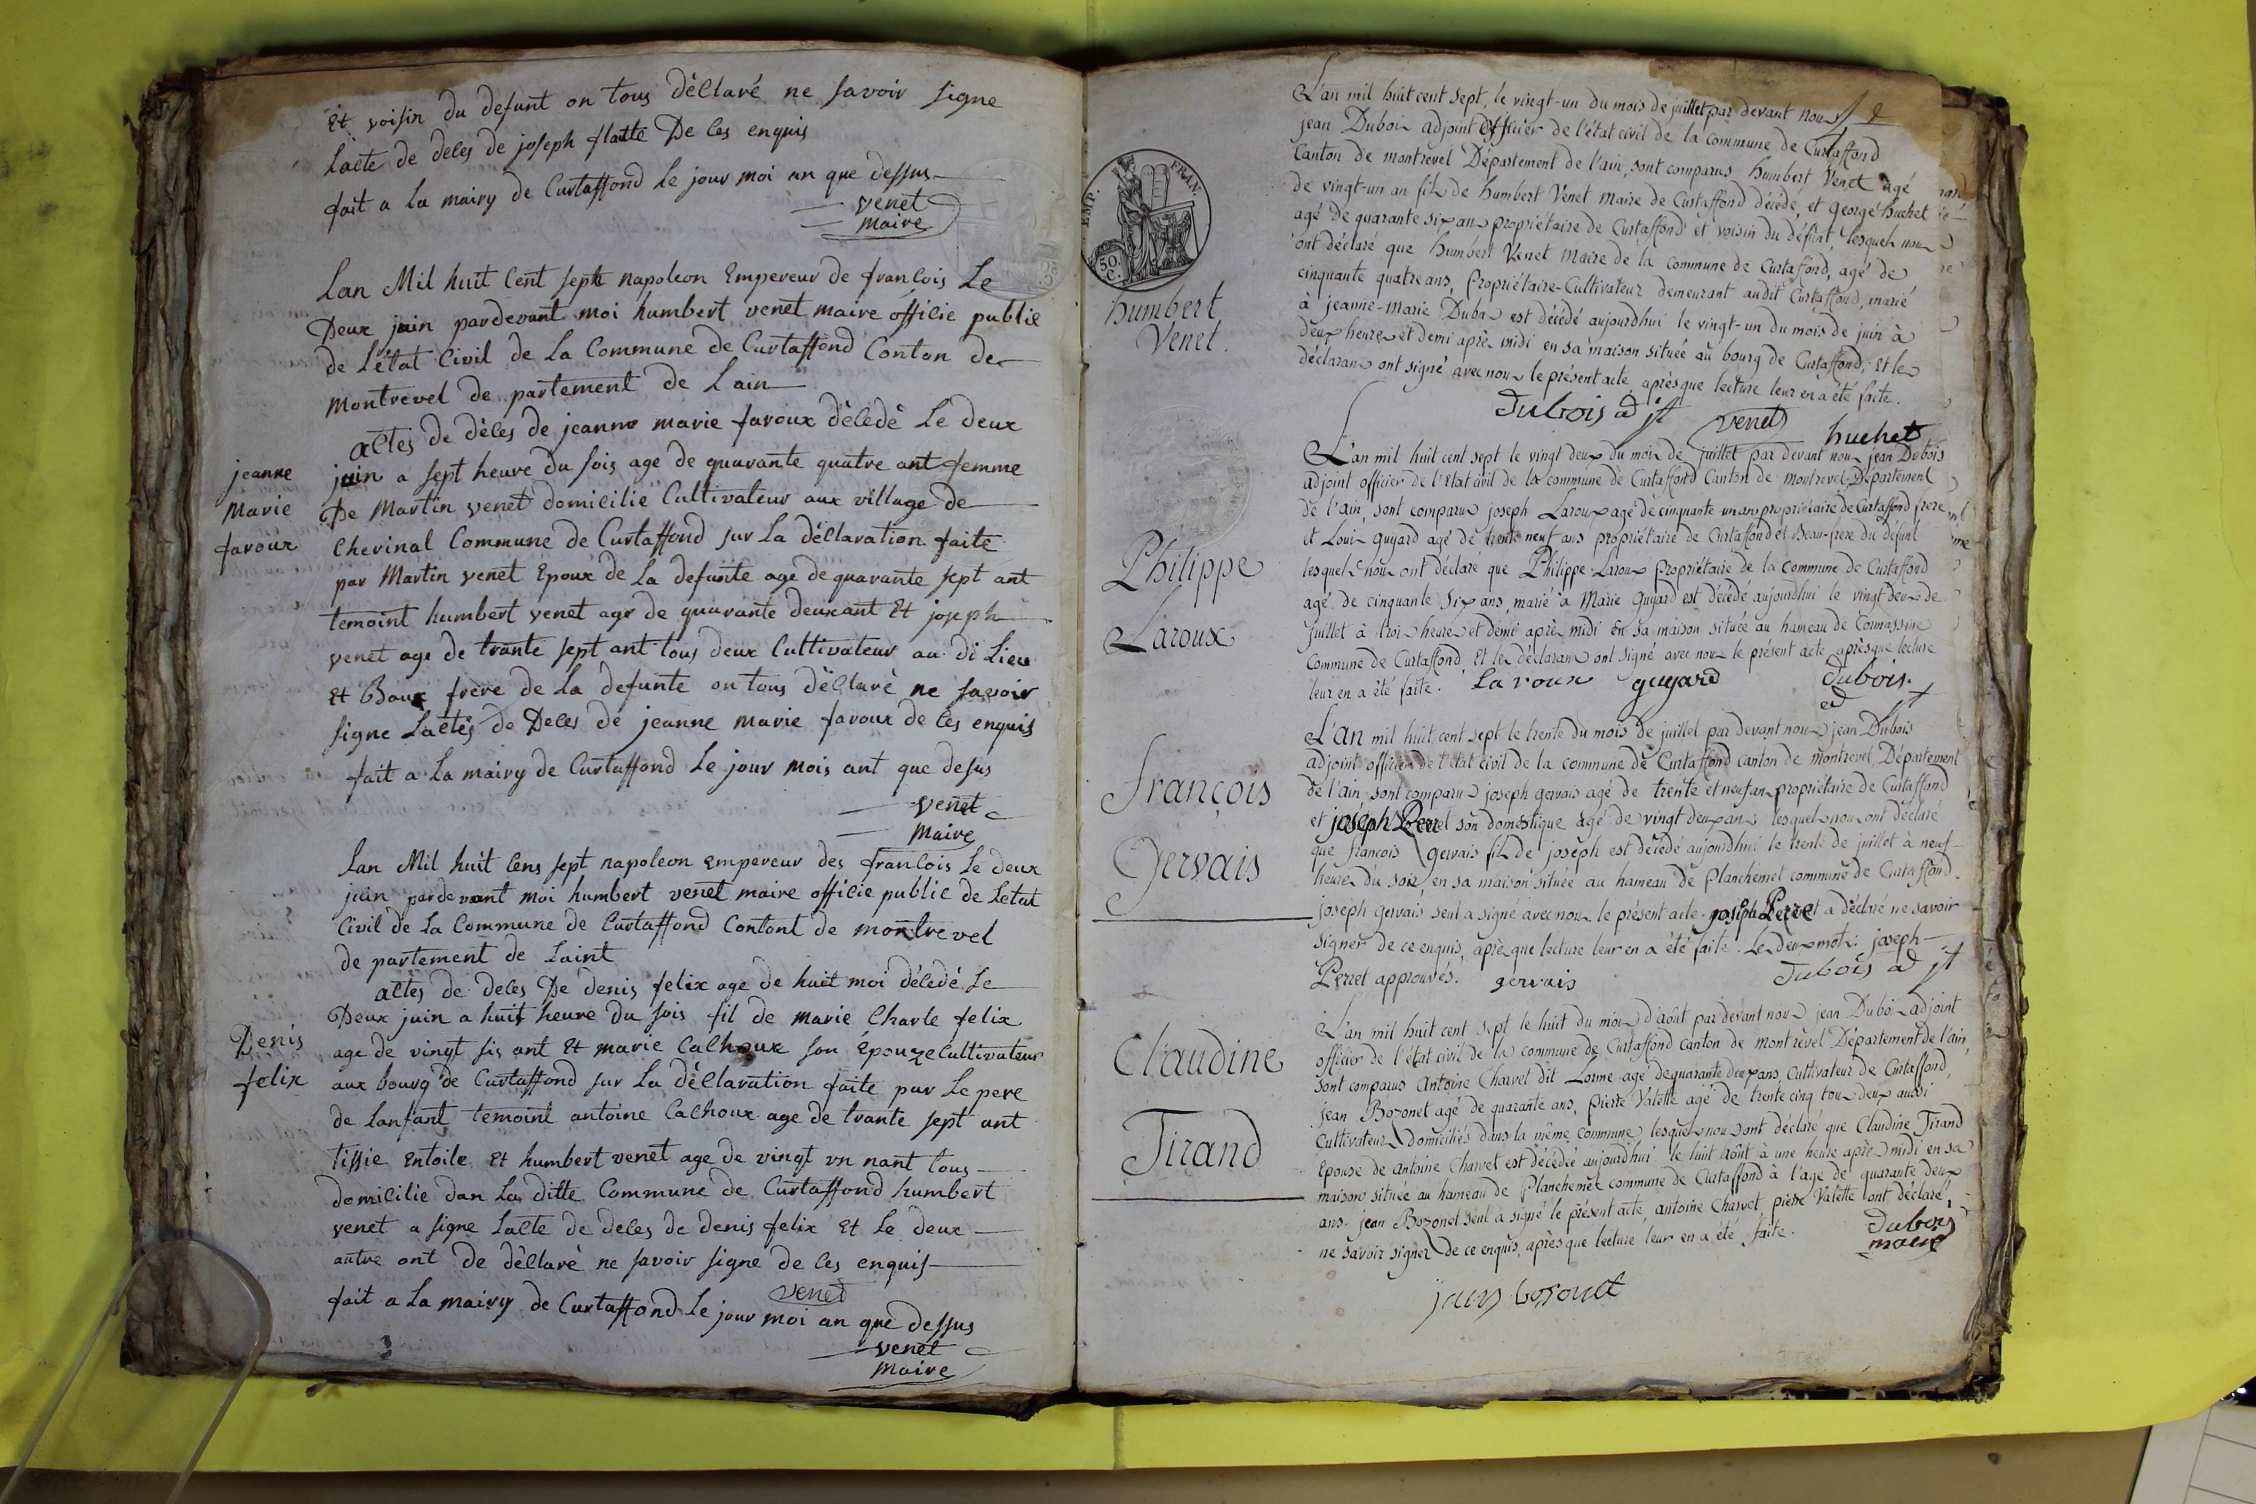 Et voisin du defunt on tous déclaré ne savoir signe
lacte de deces de joseph flatte De ces enquis
fait a La mairy de Curtaffond le jour moi an que dessus
venet
maire
Lan Mil huit Cent sept napoleon Empereur de francois Le
Deux juin pardevant moi humbert venet maire officie public
de Létat Civil de La Commune de Curtaffond Conton de
montrevel de partement de Lain
actes de déces de jeanne marie favoux décedé Le deux
jeanne
Marie
favoux
juin a sept heure du sois age de quarante quatre ant femme
De Martin venet domicilié Cultivateur aux village de
Cherinal Commune de Curtaffond sur La déclaration faite
par Martin venet Epoux de La defunte age de quarante sept ant
temoint humbert venet age de quarante deux ant Et joseph
venet age de trante sept ant tous deux Cultivateur au di Lieu
Et Baux frère de La defunte on tous déclaré ne savoir
signe Lactes de Deces de jeanne marie favoux de ces enquis
fait a La mairy de Curtaffond Le jour mois ant que desus
venet
Maire
Lan Mil huit Cens sept napoleon Empereur des francois Le deux
juin pardevant moi humbert venet maire officie public de Letat
Civil de La Commune de Curtaffond Contont de montrevel
de partement de Laint
actes de deces De denis felix age de huit moi décedé Le
Denis
felix
Deux juin a huit heure du sois fil de marie Charle felix
age de vingt sis ant Et marie Calhoux son Epouze Cultivateur
aux bourg de Curtaffond sur La déclaration faite par Le pere
de Lanfant temoint antoine Calhoux age de trante sept ant
tissie Entoile Et humbert venet age de vingt un nant tous
domicilie dan La ditte Commune de Curtaffond humbert
venet a signe Lacte de deces de denis felix Et Le deux
autre ont de déclaré ne savoir signe de ces enquis
venet
fait a La mairy de Curtaffond Le jour moi an que dessus
venet
Maire
EMP. FRAN.
50. C.
humbert
Venet.
L'an mil huit cent sept, le vingt-un du mois de juillet par devant nous
jean Dubois adjoint Officier de l'état civil de la commune de Curtaffond
Canton de montrevel Département de l'ain, sont comparus humbert Venet agé
de vingt-un an fils de humbert Venet Maire de Curtaffond décédé, et george huchet
agé de quarante six ans propriétaire de Curtaffond et voisin du défunt, lesquels nous
ont déclaré que humbert Venet Maire de la commune de Curtaffond, agé de
cinquante quatre ans, Propriétaire-Cultivateur demeurant audit Curtaffond, marié
à jeanne-Marie Dubas est décédé aujourdhui le vingt-un du mois de juin à
deux heures et demi après midi en sa maison située au bourg de Curtaffond; Et les
déclarans ont signé avec nous le présent acte après que lecture leur en a été faite.
Dubois adjt venet huchet
Philippe
Laroux
L'an mil huit cent sept le vingt deux du mois de juillet par devant nous jean Dubois
adjoint officier de l'Etat civil de la commune de Curtaffond Canton de Montrevel, Département
de l'ain, sont comparus joseph Laroux agé de cinquante un ans propriétaire de Curtaffond frere
et Louis Guyard agé de trente neuf ans propriétaire de Curtaffond et Beau-frere du défunt
lesquels nous ont déclaré que Philippe Laroux Propriétaire de la commune de Curtaffond
agé de cinquante Six ans, marié à Marie Guyard est décédé aujourdhui le vingt deux de
juillet à trois heures et demi après midi en sa maison située au hameau de
Commune de Curtaffond, Et les déclarans ont signé avec nous le présent acte après que lecture
leur en a été faite. Laroux guyard Dubois
adjt
françois
Gervais
L'an mil huit cent sept le trente du mois de juillet par devant nous jean Dubois
adjoint officier de l'état civil de la commune de Curtaffond canton de montrevel, Département
de l'ain, sont comparus joseph gervais agé de trente et neuf ans propriétaire de Curtaffond
et joseph Perret son domestique agé de vingt deux ans lesquels nous ont déclaré
que françois gervais fils de joseph est décédé aujourdhui le trente de juillet à neuf
heures du soir, en sa maison située au hameau de Planchemel commune de Curtaffond.
joseph gervais seul a signé avec nous le présent acte. joseph Perret a déclaré ne savoir
signer de ce enquis, après que lecture leur en a été faite. Les deux mots: joseph
Perret approuvés. gervais Dubois adjt
Claudine
Tirand
L'an mil huit cent sept le huit du mois d'août par devant nous jean Dubois adjoint
officier de l'état civil de la commune de Curtaffond canton de montrevel Département de l'ain,
sont comparus Antoine Charvet dit Lorme agé de quarante deux ans, Cultivateur de Curtaffond,
Jean Bozonet agé de quarante ans, pierre Valette agé de trente cinq tous deux aussi
Cultivateurs domiciliés dans la même commune, lesquels nous ont déclaré que Claudine Tirand
Epouse de Antoine Charvet est décédée aujourdhui le huit Août à une heure après midi en sa
maison située au hameau de Planchemel commune de Curtaffond à l'age de quarante deux
ans. jean Bozonet seul a signé le présent acte, antoine Charvet, pierre Valette ont déclaré
ne savoir signer de ce enquis, après que lecture leur en a été faite.
Dubois
maire
jean bosonet